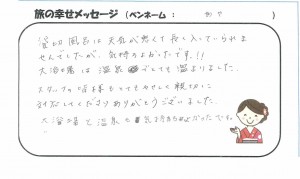 旅の幸せメッセージ（ペンネーム：　　　）
露天風呂は天気が悪くて長く入っていられま
せんでしたが、気持ちよかったです。!!
大浴場は温泉 とても温まりました。
スタッフの皆様もとてもやさしく親切に
対応してくださりありがとうございました。
大浴場と温泉も 気持ちよかったです。